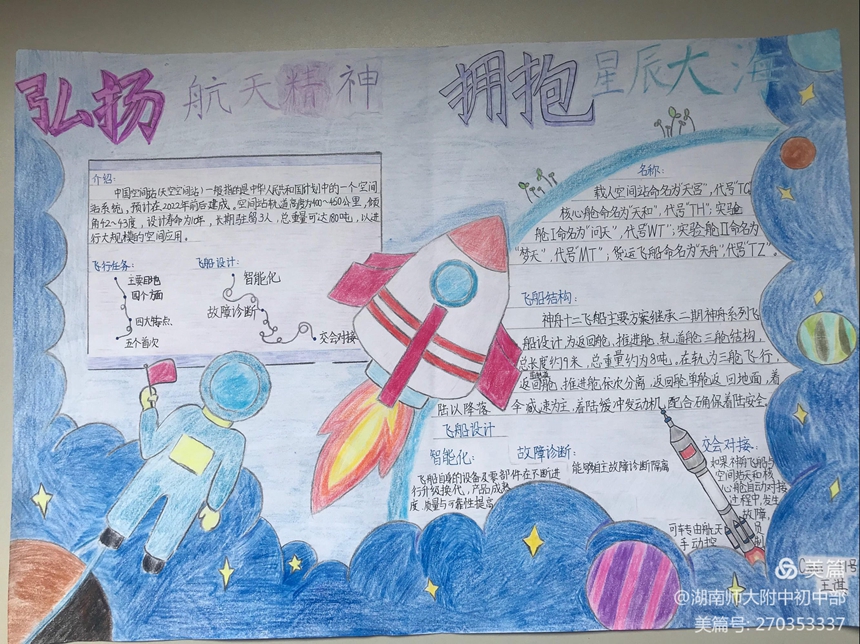 弘扬航天精神
拥抱星辰大海
介绍:
中国空间站(天空空间站)一般指的是中华人民共和国计划中的一个空间
站系统,预计在2022年前后建成。空间站轨道高度为400~450公里,倾
角42~43度,设计寿命为10年,长期驻留3人,总重量可达180吨,以进
行大规模的空间应用。
飞行任务:
主要目的
四个方面
四大特点
五个首次
飞船设计:
智能化
故障诊断
交会对接
名称:
载人空间站命名为"天宫",代号"TG
核心舱命名为"天和",代号"TH";实验
舱I命名为"问天",代号WT";实验舱II命名为
"梦天",代号"MT";货运飞船命名为"天舟",代号"TZ"。
飞船结构:
神舟十二飞船主要方案继承二期神舟系列飞
船设计,为返回舱,推进舱,轨道舱三舱结构,
总长度约9米,总重量约为8吨。在轨为三舱飞行,
返回舱,推进舱依次分离,返回舱单舱返回地面,着
陆以降落伞减速为主,着陆缓冲发动机,配合确保着陆安全。
飞船设计
智能化:
飞船自身的设备及零部件在不断进
行升级换代,产品成熟
度、质量与可靠性提高
故障诊断:
能够自主故障诊断隔离
交会对接:
如果神舟飞船与
空间站天和核
心舱自动对接
过程中,发生
故障,
可转由航天员
手动控
美篇
@湖南师大附中初中部
美篇号: 270353337